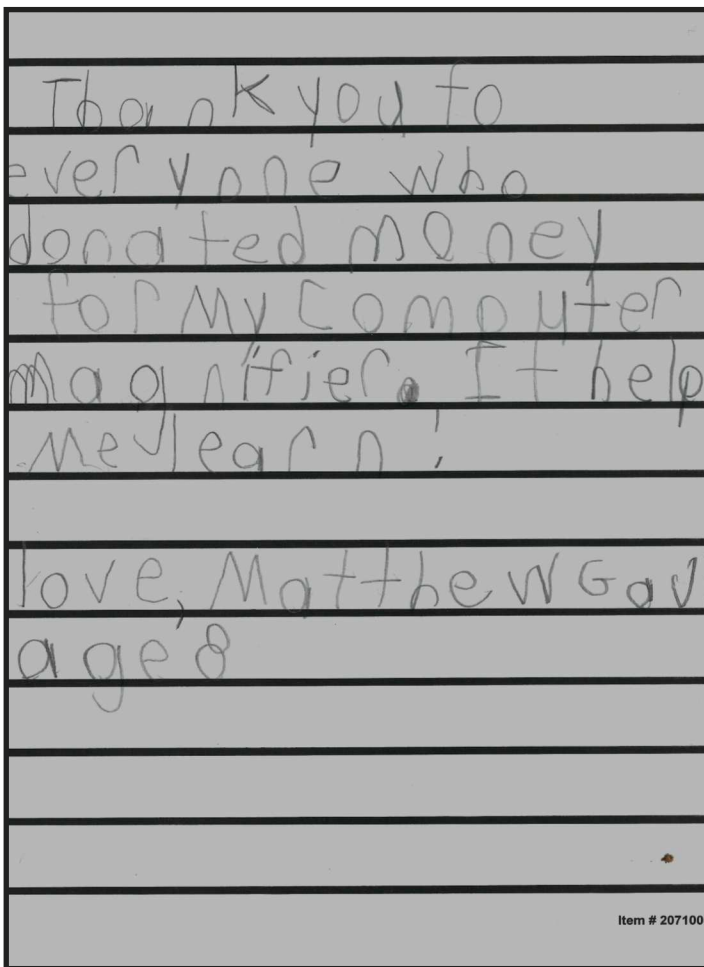 Thank you to
everyone who
donated money
for My computer
magnifier. It help
Me learn!
love, Matthew Gav
age 8
Item # 207100